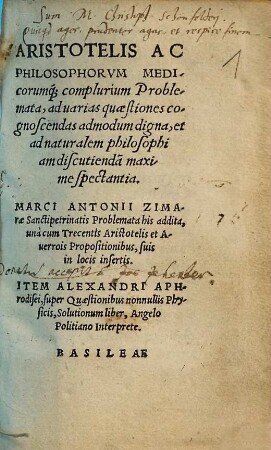 Sum M.
quicqd agas, prudenter agas, et respice finem
1
ARISTOTELIS AC
PHILOSOPHORVM MEDI
corumq́; complurium Proble
mata, ad uarias quæstiones co
gnoscendas admodum digna, et
ad naturalem philosophi
am discutiendã maxi
me spectantia.
MARCI ANTONII ZIMA
ræ Sanctipetrinatis Problemata his addita,
unà cum Trecentis Aristotelis et A
uerrois Propositionibus, suis
in locis insertis.
ITEM ALEXANDRI APH
rodisei, super Quæstionibus nonnullis Phy
sicis, Solutionum liber, Angelo
Politiano Interprete.
BASILEAE